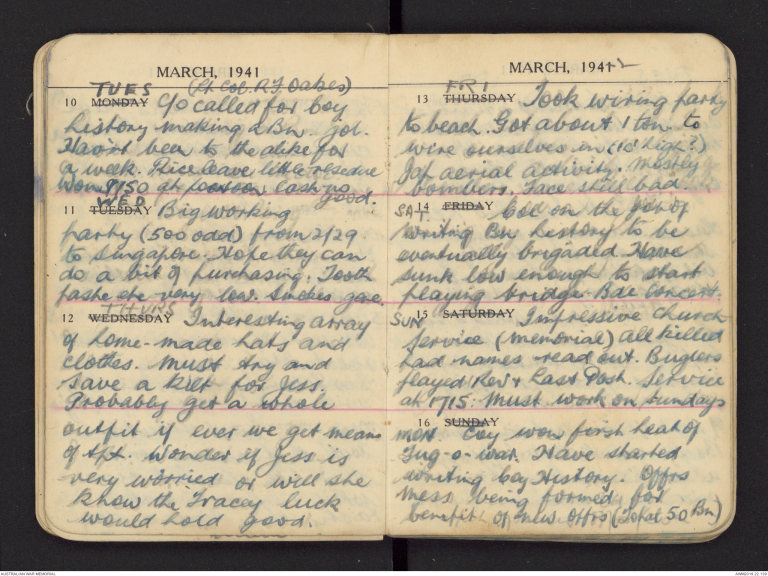 MARCH, 1941
TUES (Lt Col. R.F. Oakes)
10 MONDAY Co called for Coy
history making a Bn. job.
Havnt been to the dike for
a week. Rice leave little reserve
Won $1150 at pontoon cash no
good.
WED.
11 TUESDAY Big working
party (500 odd) from 2/29
to Singapore. Hope they can
do a bit of purchasing. Tooth
paste etc very low. Smokes gone.
THURS
12 WEDNESDAY Interesting array
of home-made hats and
clothes. Must try and
save a kilt for Jess.
Probably get a whole
outfit if ever we get means
of tpt. Wonder if Jess is
very worried or will she
know the Tracey luck
would hold good.
MARCH, 1941
FRI
13 THURSDAY Took wiring party
to beach. Got about 1 ton to
wire ourselves in (10' high?)
Jap aerial activity. Mostly
bombers. Face still bad.
SAT. 14 FRIDAY Col on the job of
writing Bn history to be
eventually brigaded. Have
sunk low enough to start
playing bridge. Bde Concert.
SUN 15 SATURDAY Impressive church
service (memorial) all killed
had names read out. Buglers
played Rev & Last Post. Service
at 1715. Must work on Sundays
16 SUNDAY
MON Coy won first heat of
Tug-o-war. Have started
writing Coy History. Offrs
mess being formed for
benefit of new offrs (Total 50 Bn)
AUSTRALIAN WAR MEMORIAL